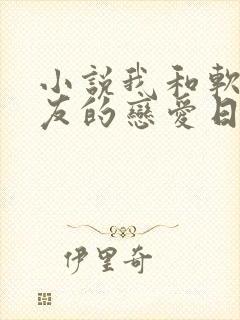 小說我和軟
友的戀愛日
伊里奇